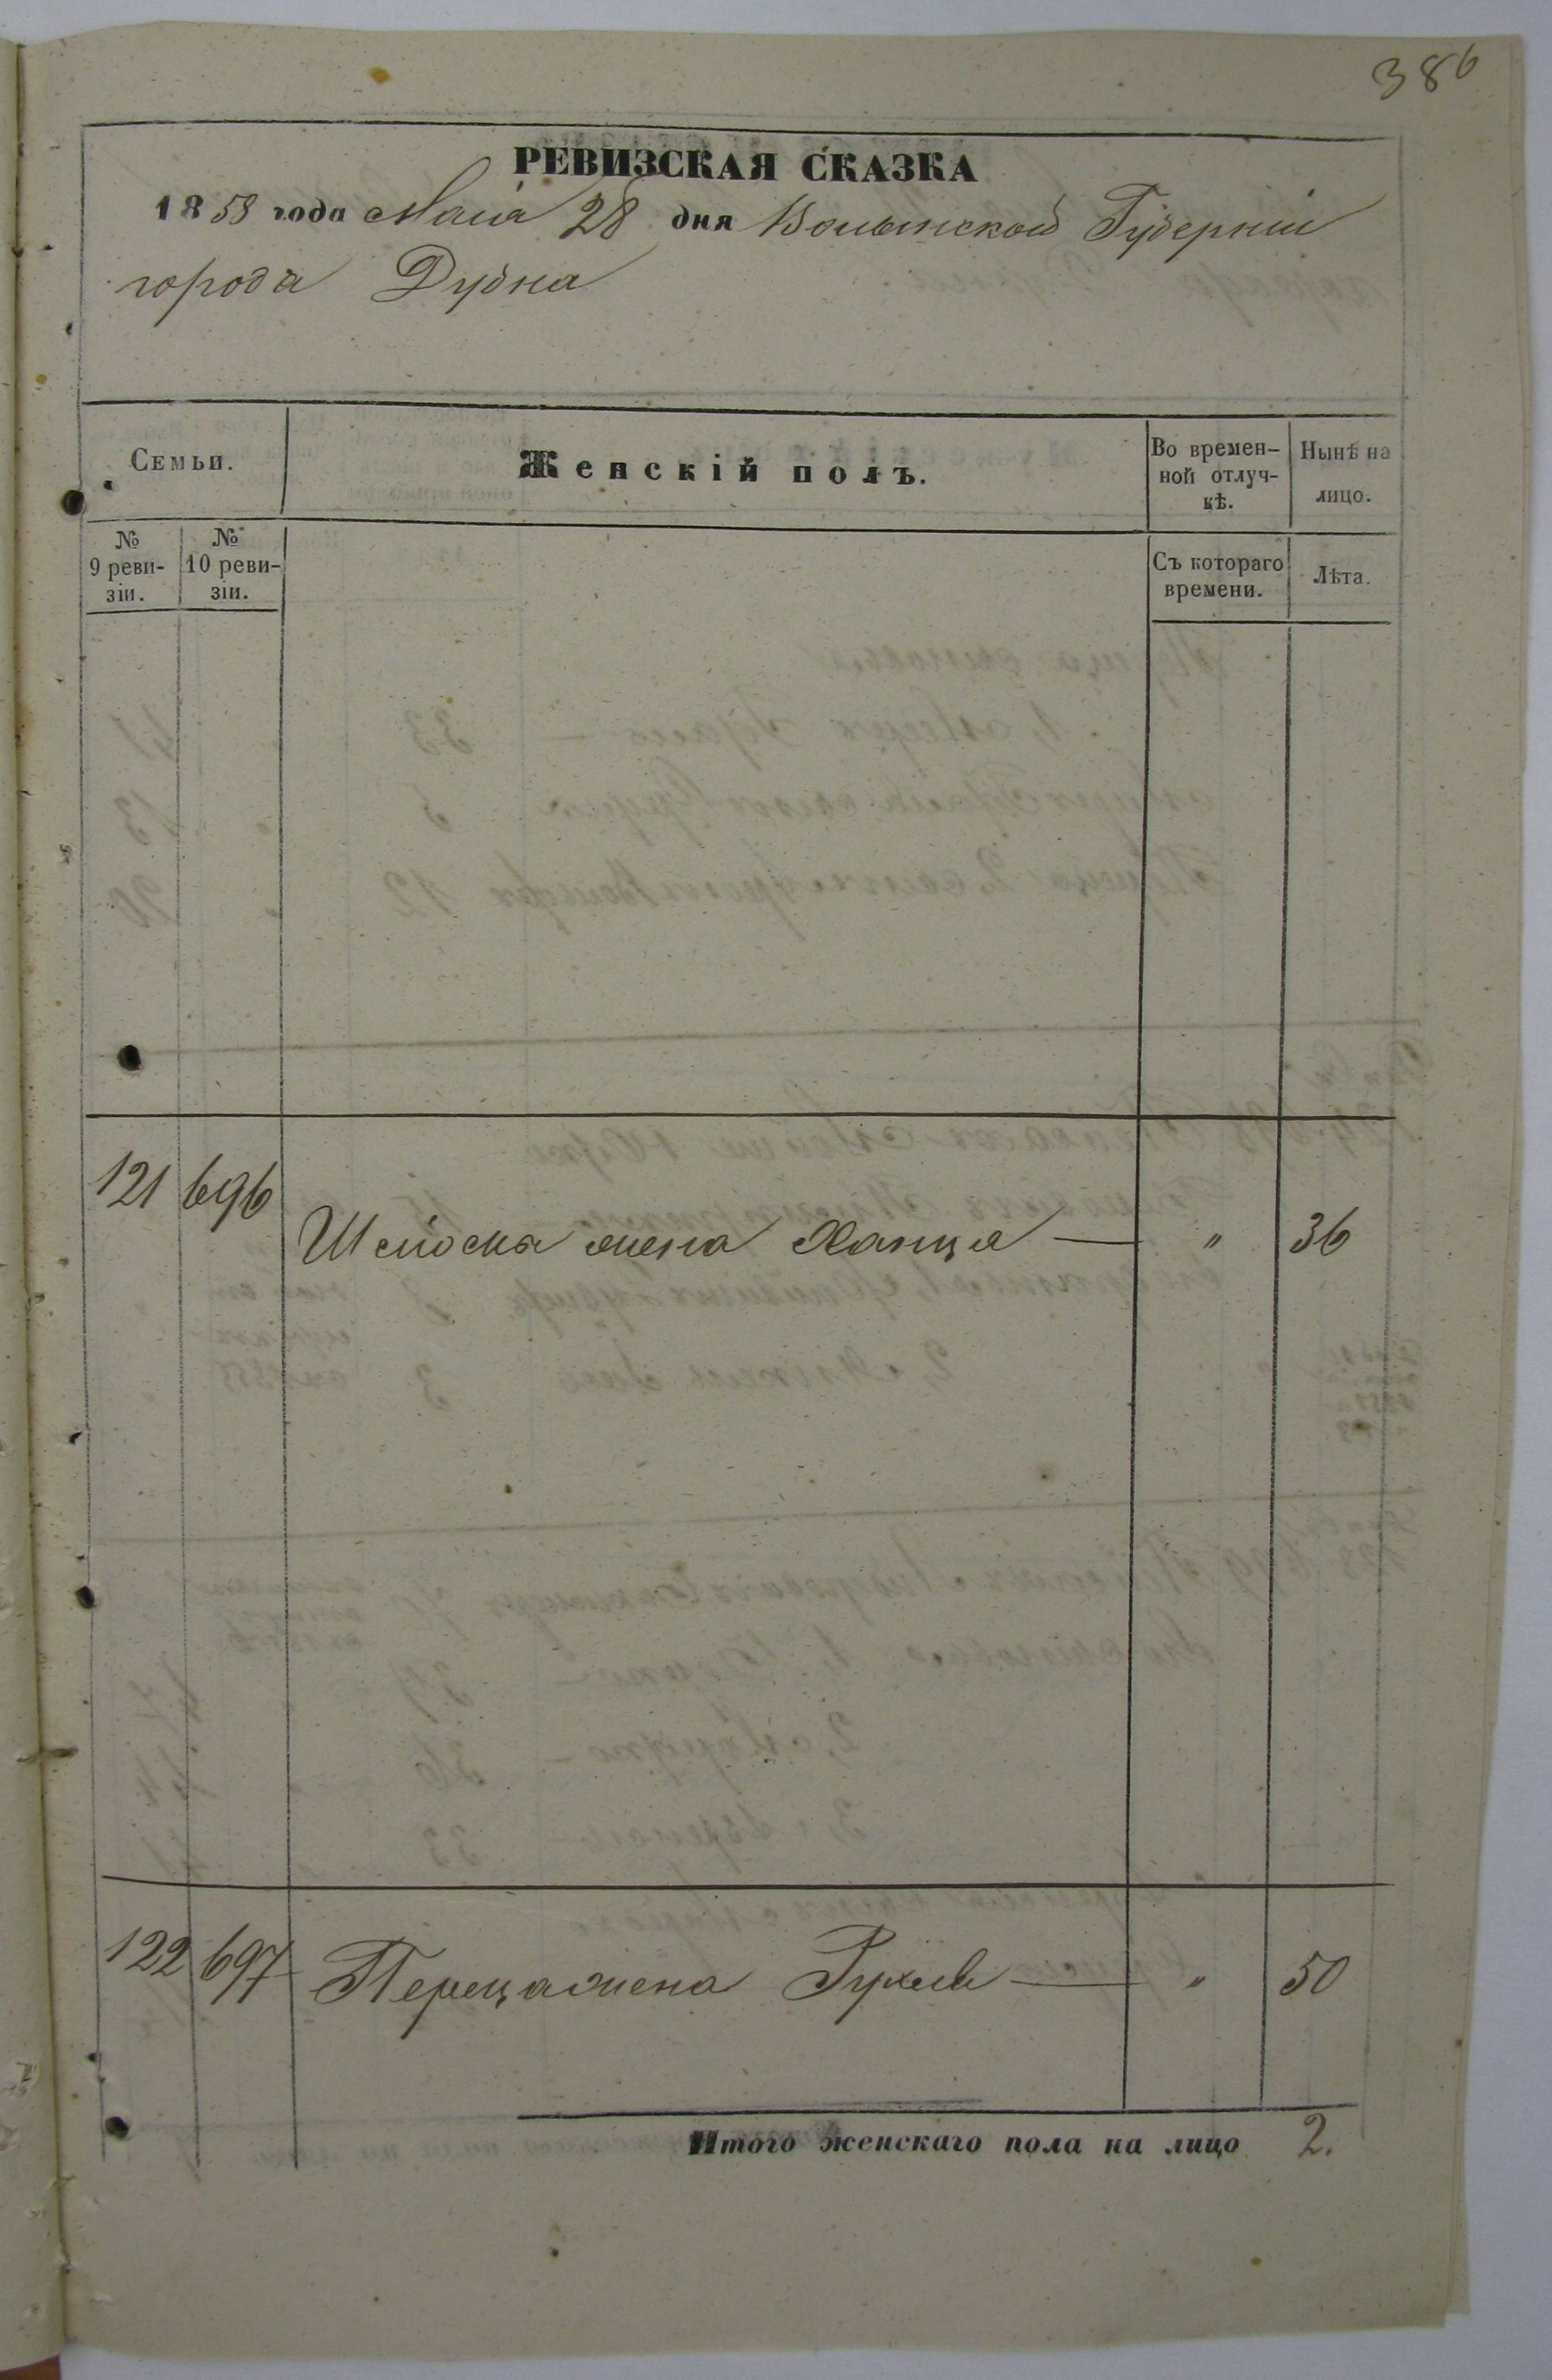 386
РЕВИЗСКАЯ СКАЗКА
1858 года Маія 28 дня Волынской Губерніи
города Дубна
Семьи.
Женскій полъ.
Во времен-
ной отлуч-
кѣ.
Нынѣ на
лицо.
№
9 реви-
зіи.
№
10 реви-
зіи.
Съ котораго
времени.
Лѣта.
121 696
жена Ханця — " 36
122 697 Переца жена Рухля — " 50
Итого женскаго пола на лицо 2.